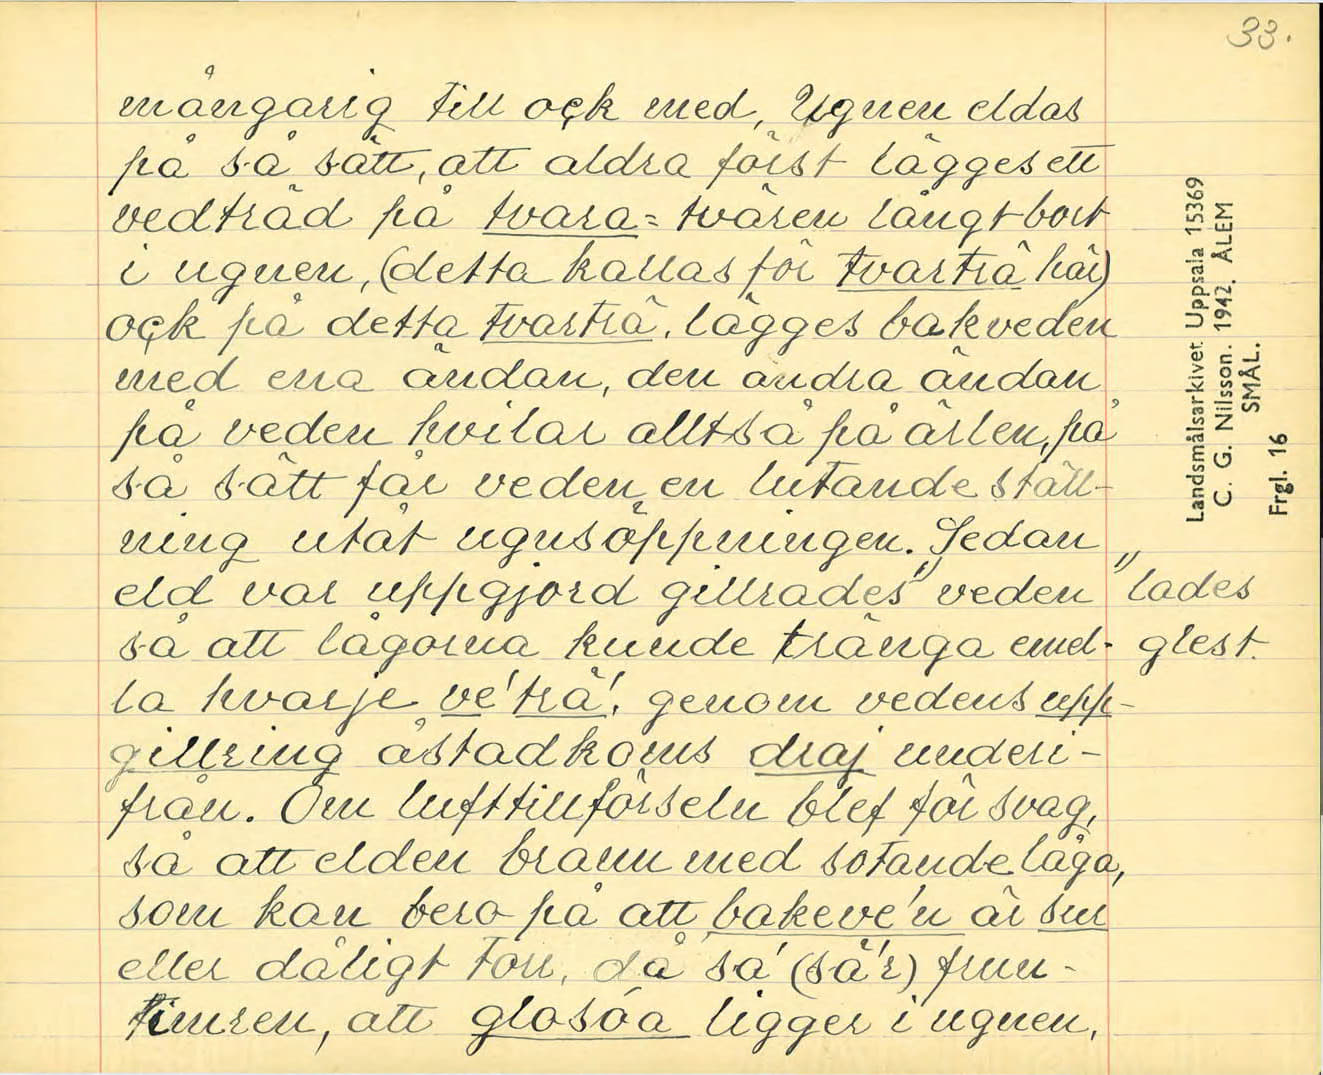 33.
mångårig till oçk med, Ugnen eldas
på så sätt, att aldra först lägges ett
vedträd på tvara = tvären långt bort
i ugnen, (detta kallas för tvarträ här)
oçk på detta tvarträ, lägges bakveden
med ena ändan, den andra ändan
på veden hvilar alltså på ärlen, på
så sätt får veden en lutande ställ-
ning utåt ugnsöppningen. Sedan
eld var uppgjord gillrades" veden "lades
så att lågorna kunde tränga emel- glest.
la hvarje ve'trä', genom vedens upp-
gillring åstadkoms draj underi-
från. Om lufttillförseln blef för svag,
så att elden brann med sotande låga,
som kan bero på att bakeve'n är sur
eller dåligt torr, då sa' (sä'r) frun-
timren, att glosoa ligger i ugnen,
Landsmålsarkivet Uppsala 15369
C. G. Nilsson. 1942. ÅLEM
SMÅL.
Frgl. 16